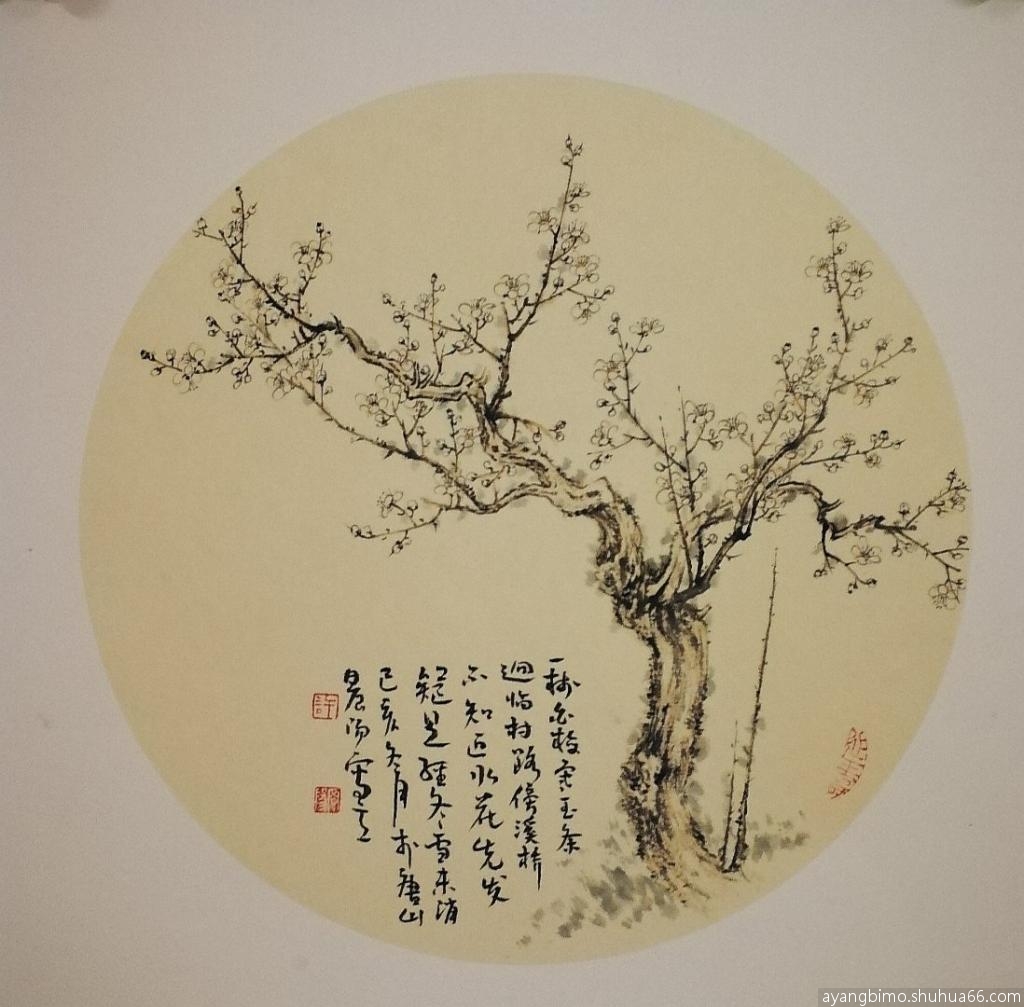 一树白梅寒玉条
迴临村路傍溪桥
不知近水花先发
疑是经冬雪未消
己亥冬月于唐山
晨阳写
许
ayangbimo.shuhua66.com